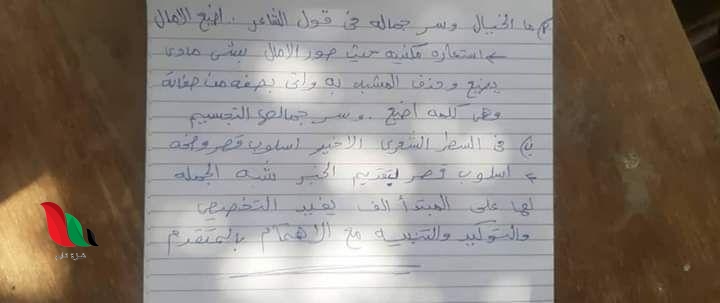 م) ما الخيال وسر جماله في قول الشاعر . اضيع الامال
← استعاره مكنيه حيث صور الامال بشئ مادى
يضيع وحذف المشبه به واتى بصفه من صفاته
وهى كلمه اضيع . وسر جمالها التجسيم
ن) فى السطر الشعرى الاخير اسلوب قصر وضحه
← اسلوب قصر بتقديم الخبر شبه الجمله
لها على المبتدأ الف يفيد التخصيص
والتوكيد والتنبيه مع الاهتمام بالمتقدم